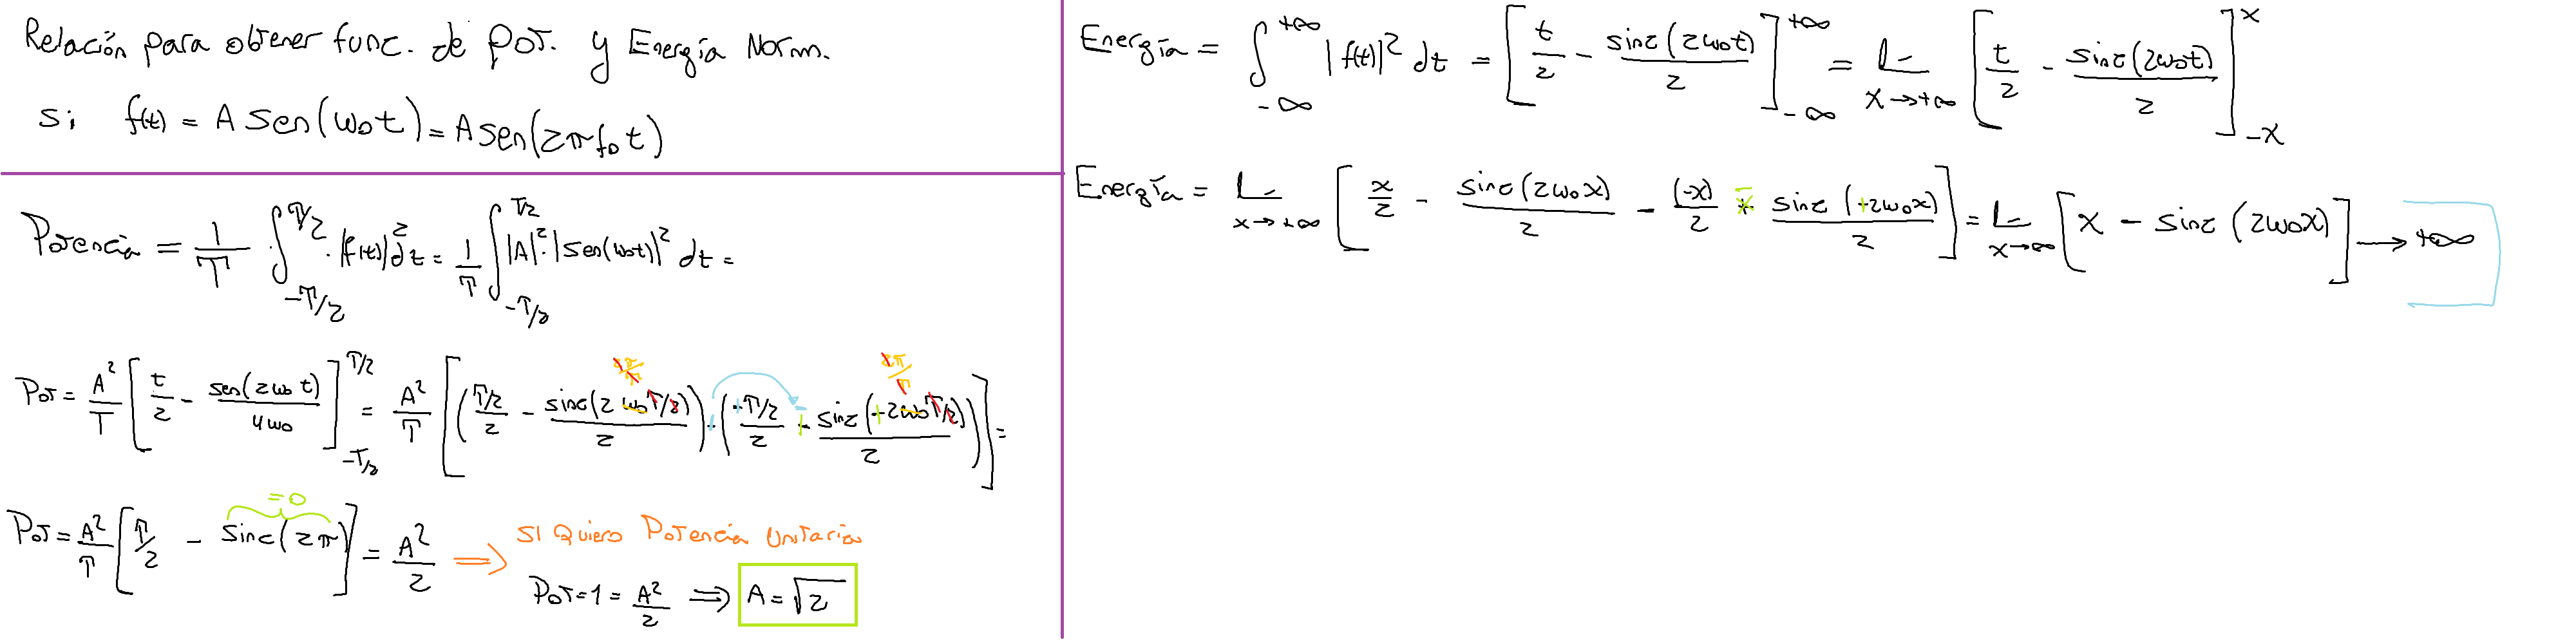 Relación para obtener func. de Pot. y Energía Norm.
Si f(t) = A Sen(ω₀t) = A Sen(2πf₀t)
Potencia = 1/T ∫_{-T/2}^{T/2} · |f(t)|² dt = 1/T ∫_{-T/2}^{T/2} |A|² · |Sen(ω₀t)|² dt =
Pot = A²/T [ t/2 - sen(2ω₀t)/4ω₀ ]_{-T/2}^{T/2} = A²/T [ ( T/2/2 - sinc(2ω₀T/2)/2 ) + ( +T/2/2 + sinc(+2ω₀T/2)/2 ) ] =
2π/T 2π/T
= 0
Pot = A²/T [ T/2 - sinc(2π) ] = A²/2 ⟹
Si Quiero Potencia Unitaria
Pot = 1 = A²/2 ⟹ A = √2
Energía = ∫_{-∞}^{+∞} |f(t)|² dt = [ t/2 - sinc(2ω₀t)/2 ]_{-∞}^{+∞} = L_{x→+∞} [ t/2 - sinc(2ω₀t)/2 ]_{-x}^{x}
Energía = L_{x→+∞} [ x/2 - sinc(2ω₀x)/2 - (-x)/2 - sinc(+2ω₀x)/2 ] = L_{x→∞} [ x - sinc(2ω₀x) ] → +∞